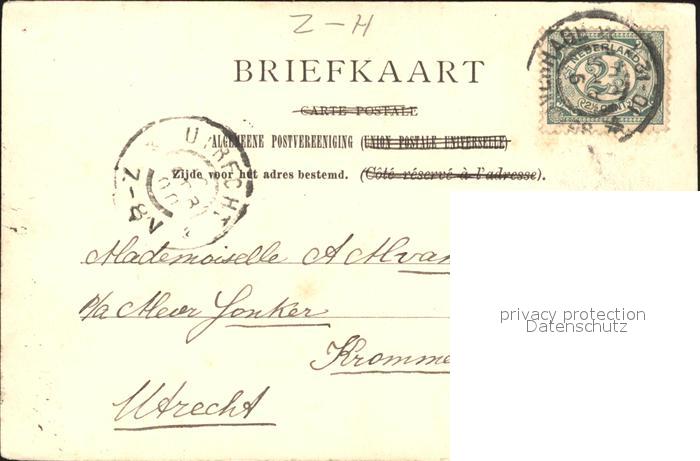 Z-H
BRIEFKAART
CARTE POSTALE
ALGEMEENE POSTVEREENIGING (UNION POSTALE UNIVERSELLE)
Zijde voor het adres bestemd. (Côté réservé à l'adresse).
NEDERLAND
2½
UTRECHT
7-8V
Mademoiselle A M van
p/a Mevr Jonker
Kromme
Utrecht
privacy protection
Datenschutz